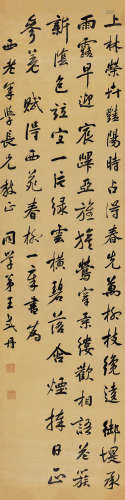 上林榮卉艷陽時占得春先萬柳枝繞遠御堤承
雨露早迎宸蹕亞旌旗鶯穿柔縷歡相語花簇
新陰色宜一片綠雲橫碧落含煙捧日正
參差 賦得西苑春柳一章書為
西老年學長兄教正 同學弟王式丹